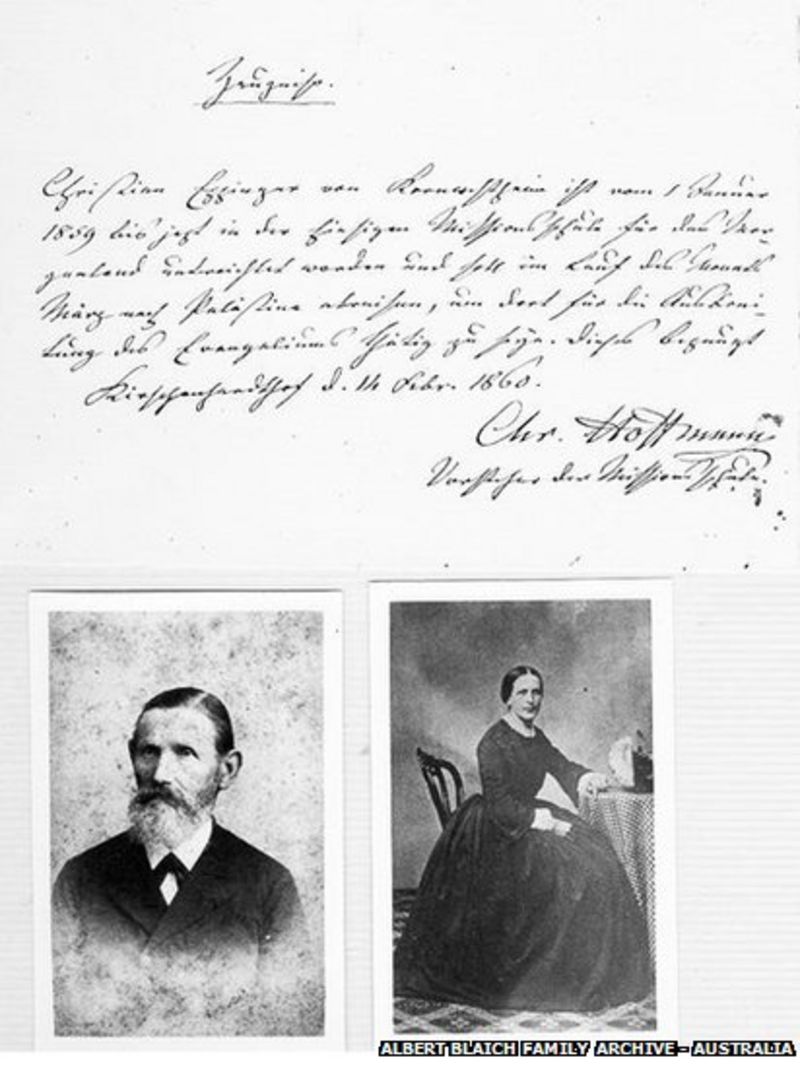 Zeugniß.
Christian Eppinger von Kornwestheim ist vom 1 Januar
1859 bis jezt in der hiesigen Missionsschule für das Mor-
genland unterrichtet worden und soll im Lauf des Monats
März nach Palästina abreisen, um dort für die Ausbrei-
tung des Evangeliums thätig zu seyn. Dieses bezeugt
Kirschenhardthof d. 14 Febr. 1860.
Chr. Hoffmann
Vorsteher der Missionsschule.
ALBERT BLAICH FAMILY ARCHIVE - AUSTRALIA